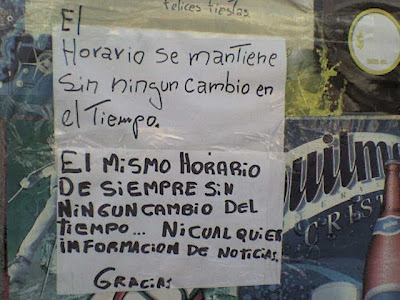 felices fiestas
El
Horario se mantiene
sin ningun cambio en
el Tiempo.
El MisMo HORARIO
DE SiEMPRE SiN
NiNGUN CAMBIO DEL
tiEMPO... Ni CUALQUIER
iNFORMACION DE NOTiCiAS.
GRACiAS
uilme
CREST